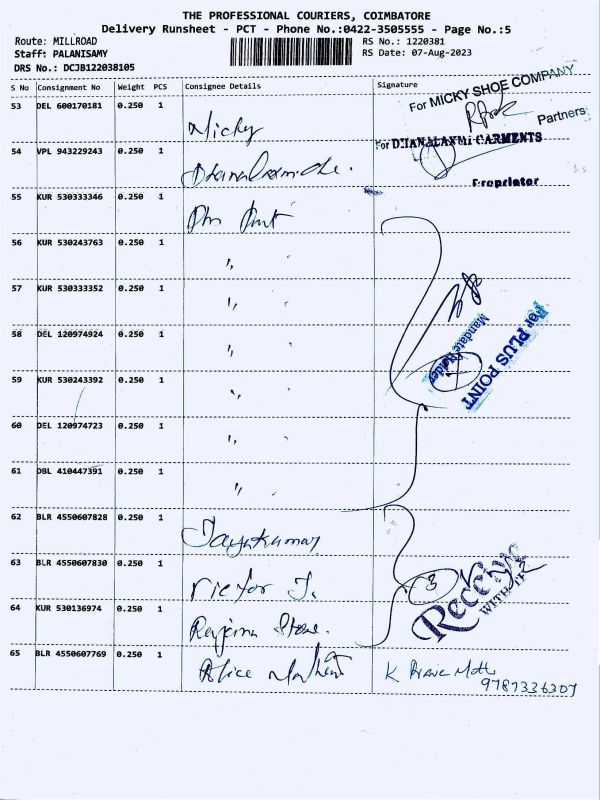 THE PROFESSIONAL COURIERS, COIMBATORE
Delivery Runsheet - PCT - Phone No.:0422-3505555 - Page No.:5
Route: MILLROAD
RS No.: 1220381
Staff: PALANISAMY
RS Date: 07-Aug-2023
DRS No.: DCJB122038105
S No Consignment No Weight PCS Consignee Details Signature
53 DEL 600170181 0.250 1 Micky
For MICKY SHOE COMPANY
Partners
54 VPL 943229243 0.250 1
For DHANALAXMI GARMENTS
Proprietor
55 KUR 530333346 0.250 1
56 KUR 530243763 0.250 1 " "
57 KUR 530333352 0.250 1 " "
58 DEL 120974924 0.250 1 " "
59 KUR 530243392 0.250 1 " "
For PLUS POINT
Mandate Holder
60 DEL 120974723 0.250 1 " "
61 DBL 410447391 0.250 1 " "
62 BLR 4550607828 0.250 1 Jayakumar
63 BLR 4550607830 0.250 1 Victor J.
3
64 KUR 530136974 0.250 1
65 BLR 4550607769 0.250 1 Alice
K
9787336307